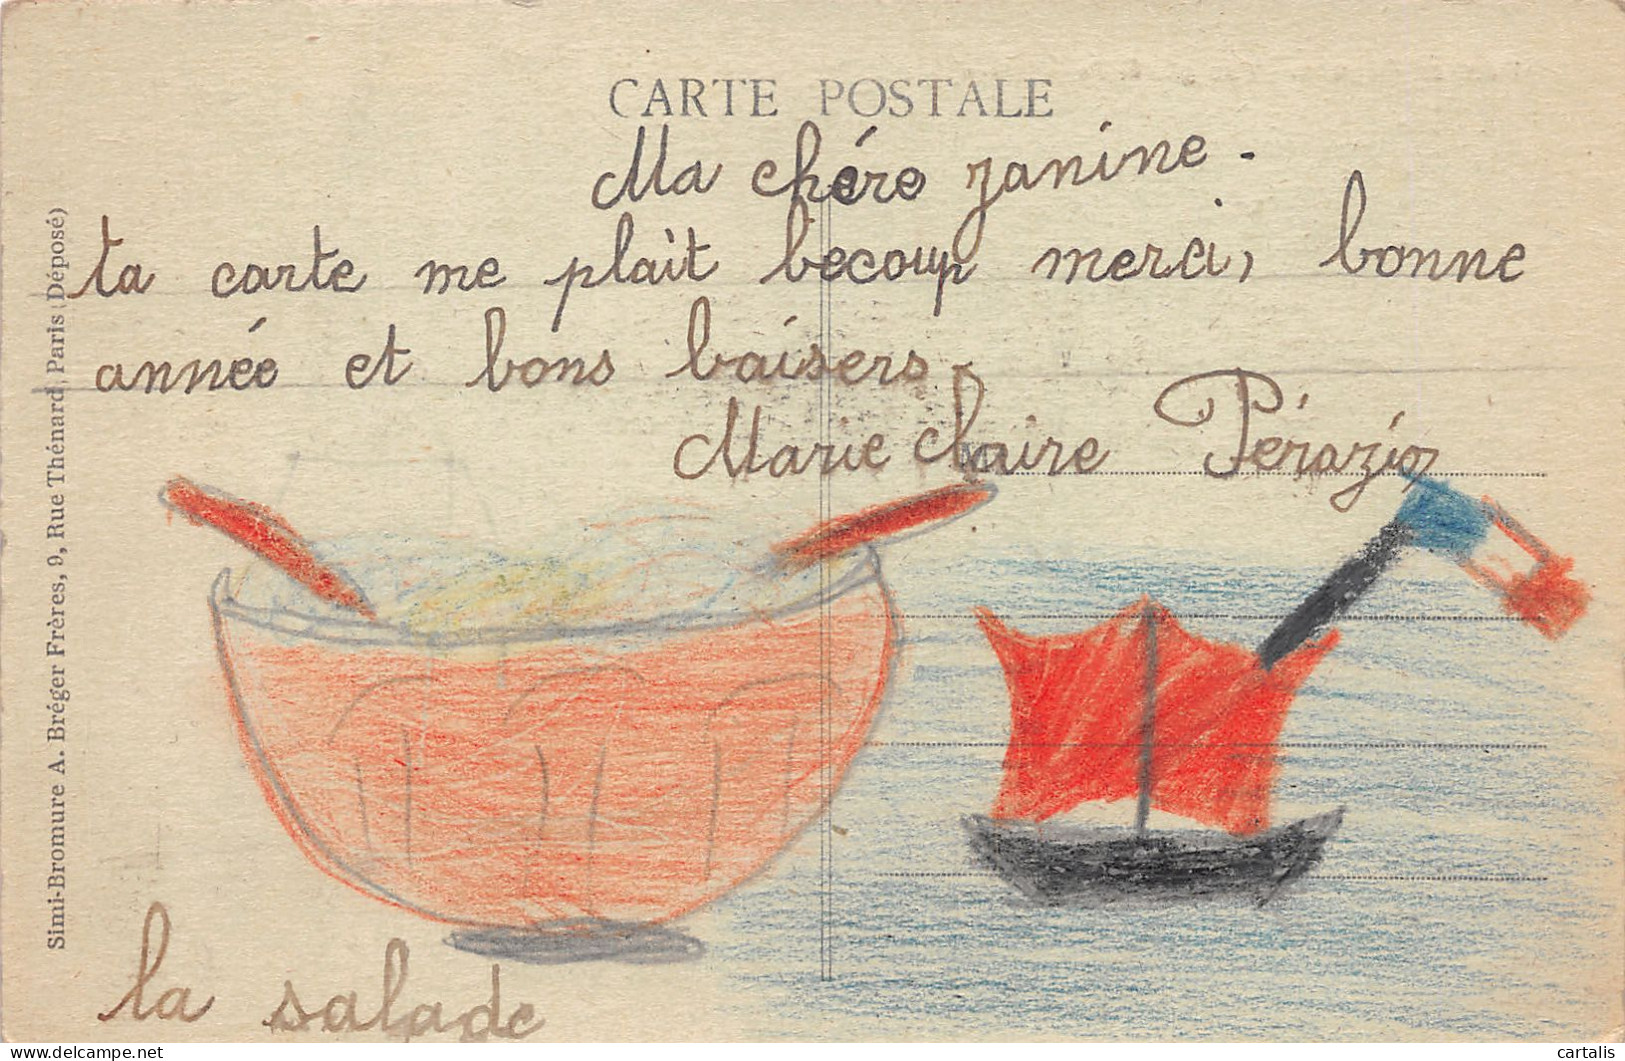 CARTE POSTALE
Ma chére janine.
ta carte me plaît becoup merci, bonne
année et bons baisers.
Marie claire Pérazio
la salade
Simi-Bromure A. Bréger Frères, 9, Rue Thénard, Paris (Déposé)
delcampe.net
cartalis